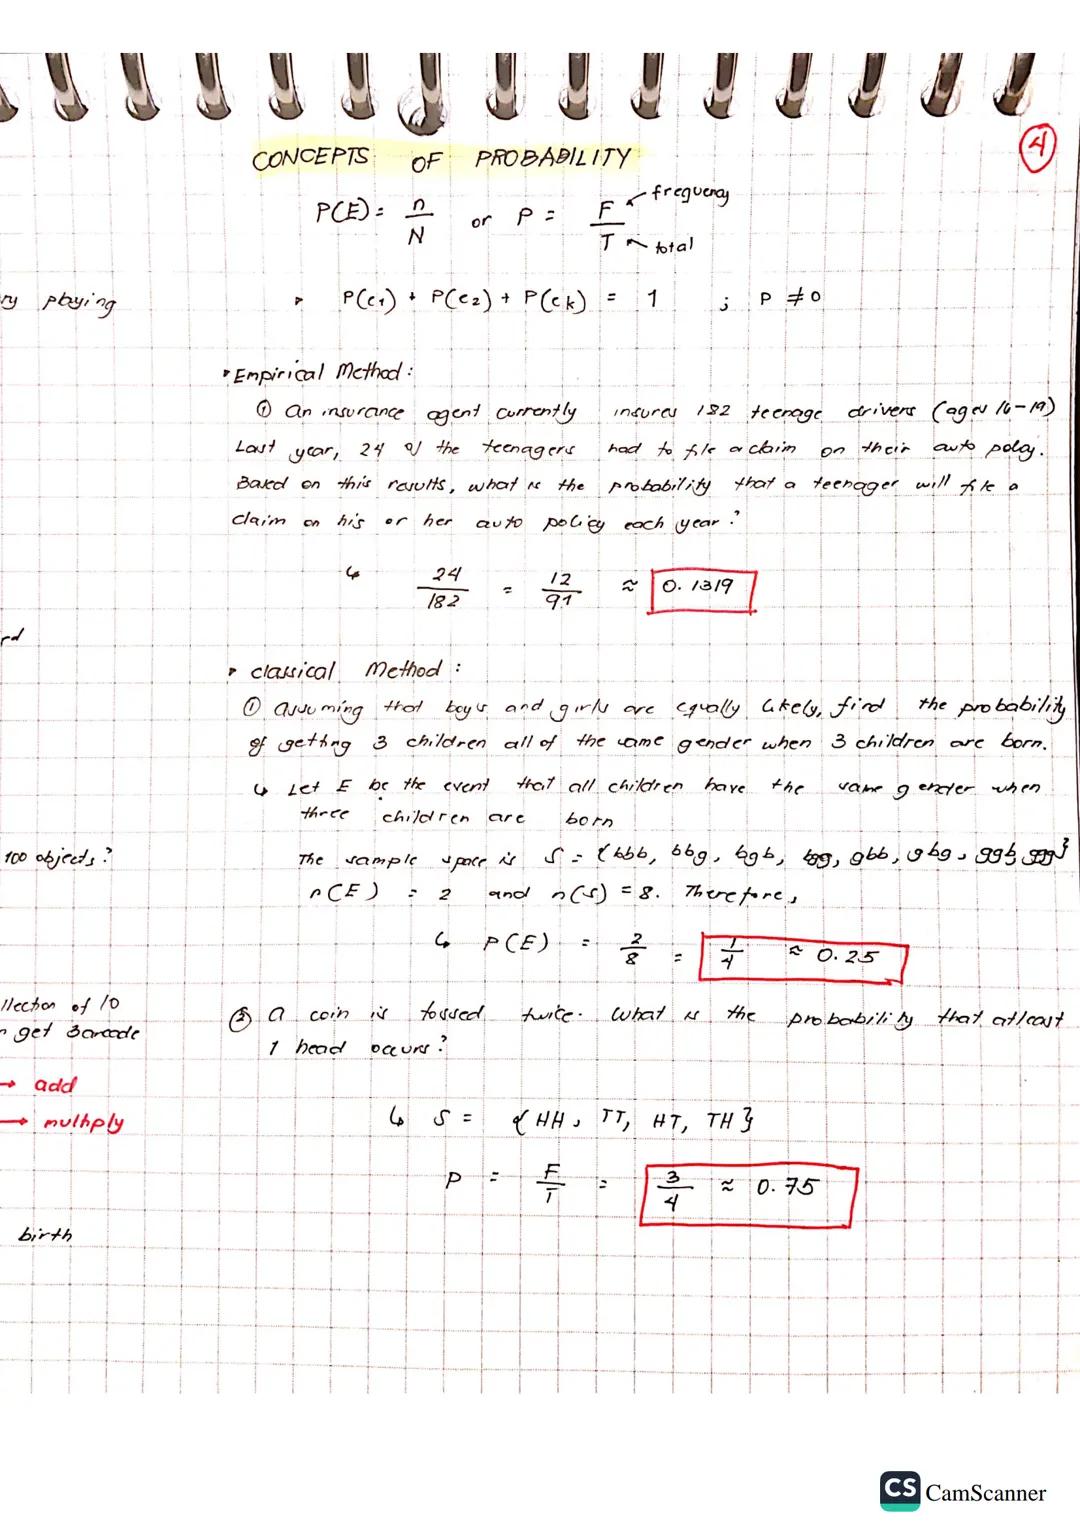 CONCEPTS OF PROBABILITY
4
P(E) = n/N or P = F/T
frequency
total
P(e1) + P(e2) + P(ek) = 1 ; P ≠ 0
playing
Empirical Method:
① An insurance agent currently insures 182 teenage drivers (ages 16-19)
Last year, 24 of the teenagers had to file a claim on their auto policy.
Based on this results, what is the probability that a teenager will file a
claim on his or her auto policy each year?
24/182 = 12/91 ≈ 0.1319
rd
classical Method:
① assuming that boys and girls are equally likely, find the probability
of getting 3 children all of the same gender when 3 children are born.
Let E be the event that all children have the same gender when
three children are born
100 objects?
The sample space is S = {bbb, bbg, bgb, bgg, gbb, gbg, ggb, ggg}
n(E) = 2 and n(S) = 8. Therefore,
P(E) = 2/8 = 1/4 ≈ 0.25
llection of 10
get 3 arcade
② A coin is tossed twice. What is the probability that atleast
1 head occurs?
→ add
→ multiply
S = {HH, TT, HT, TH}
P = F/T = 3/4 ≈ 0.75
birth
CS CamScanner